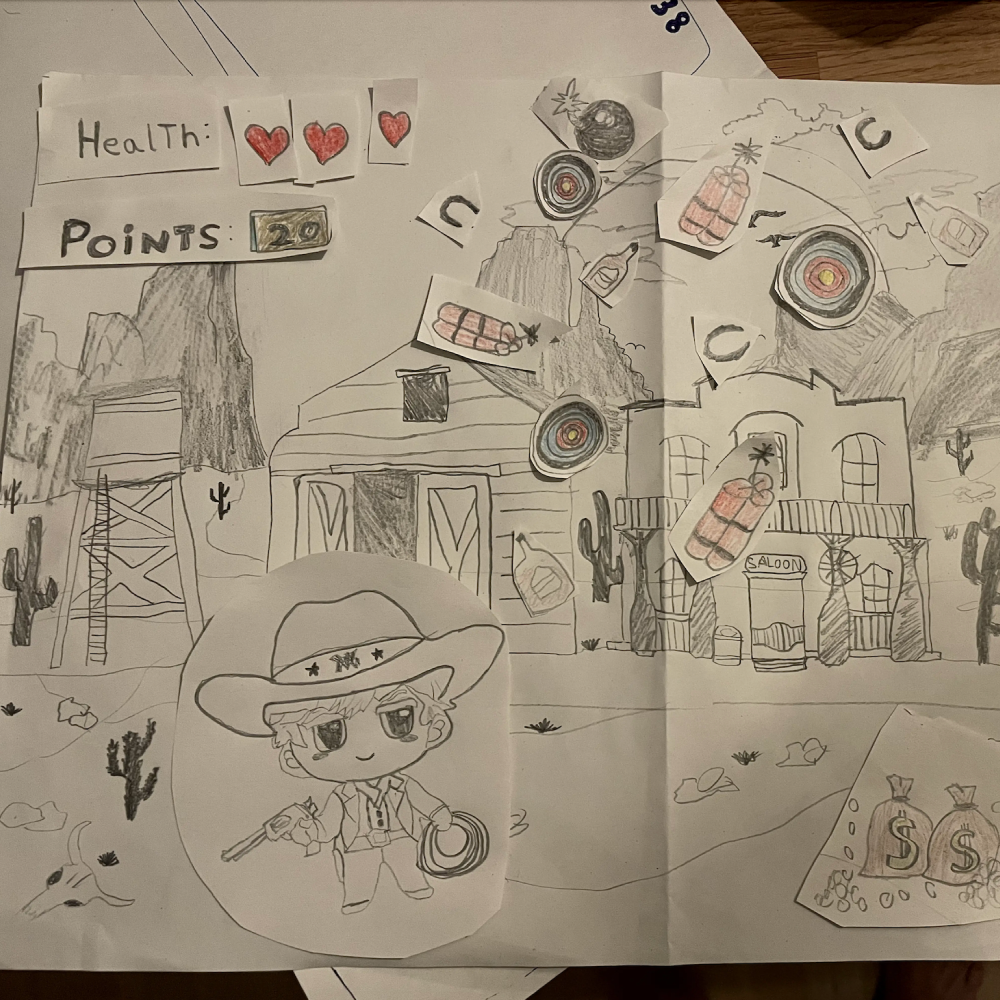 38
HealTh:
POiNTS: 20
SALOON
$ $